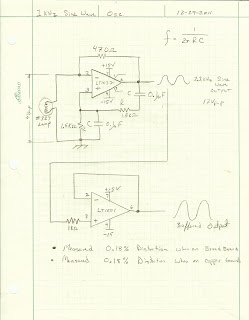 1 kHz Sine Wave Osc 12-29-2011
f = 1 / 2πRC
470Ω
+15V
-15V
C 0.1µF
R
1.5KΩ
C 0.1µF
#327
lamp
Sine Wave
output
+15V
LT1001
-15
1KΩ
Buffered Output
• Measured 0.18% Distortion when on Breadboard
• Measured 0.15% Distortion when on copper board